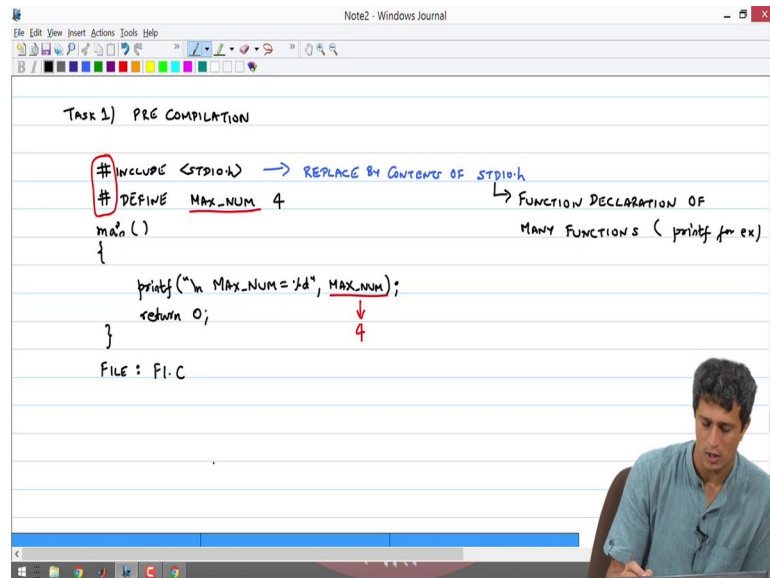 Note2 - Windows Journal
File Edit View Insert Actions Tools Help
B I
TASK 1) PRE COMPILATION
# INCLUDE <STDIO.h> → REPLACE BY CONTENTS OF STDIO.h
# DEFINE MAX_NUM 4
↳ FUNCTION DECLARATION OF
MANY FUNCTIONS ( printf for ex)
main ()
{
printf("\n MAX_NUM = %d", MAX_NUM);
↓
4
return 0;
}
FILE : F1.C